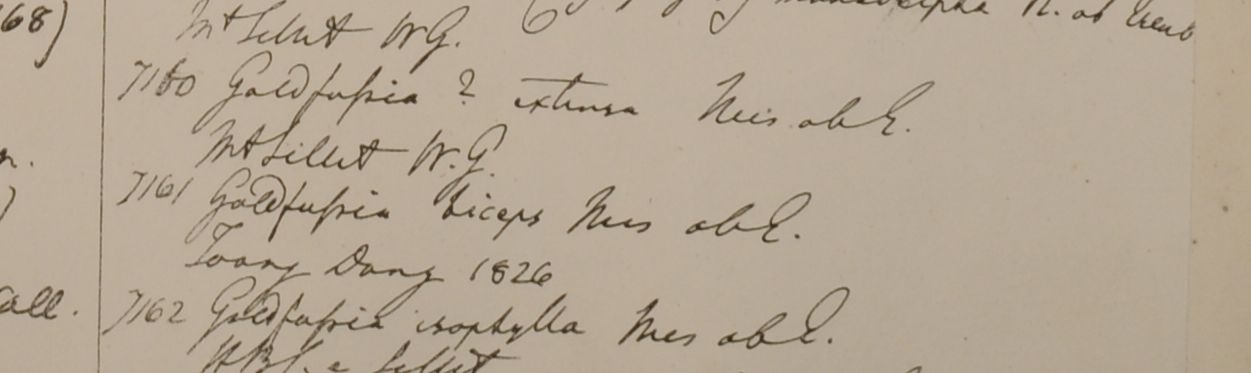 68) monadelpha N. ab Esenb
Mt Sillet W.G.
7160 Goldfussia ? extensa Nees ab E.
Mt Sillet W.G.
7161 Goldfussia biceps Nees ab E.
Toong Dong 1826
7162 Goldfussia isophylla Nees ab E.
all.
H.B.C. e Sillet